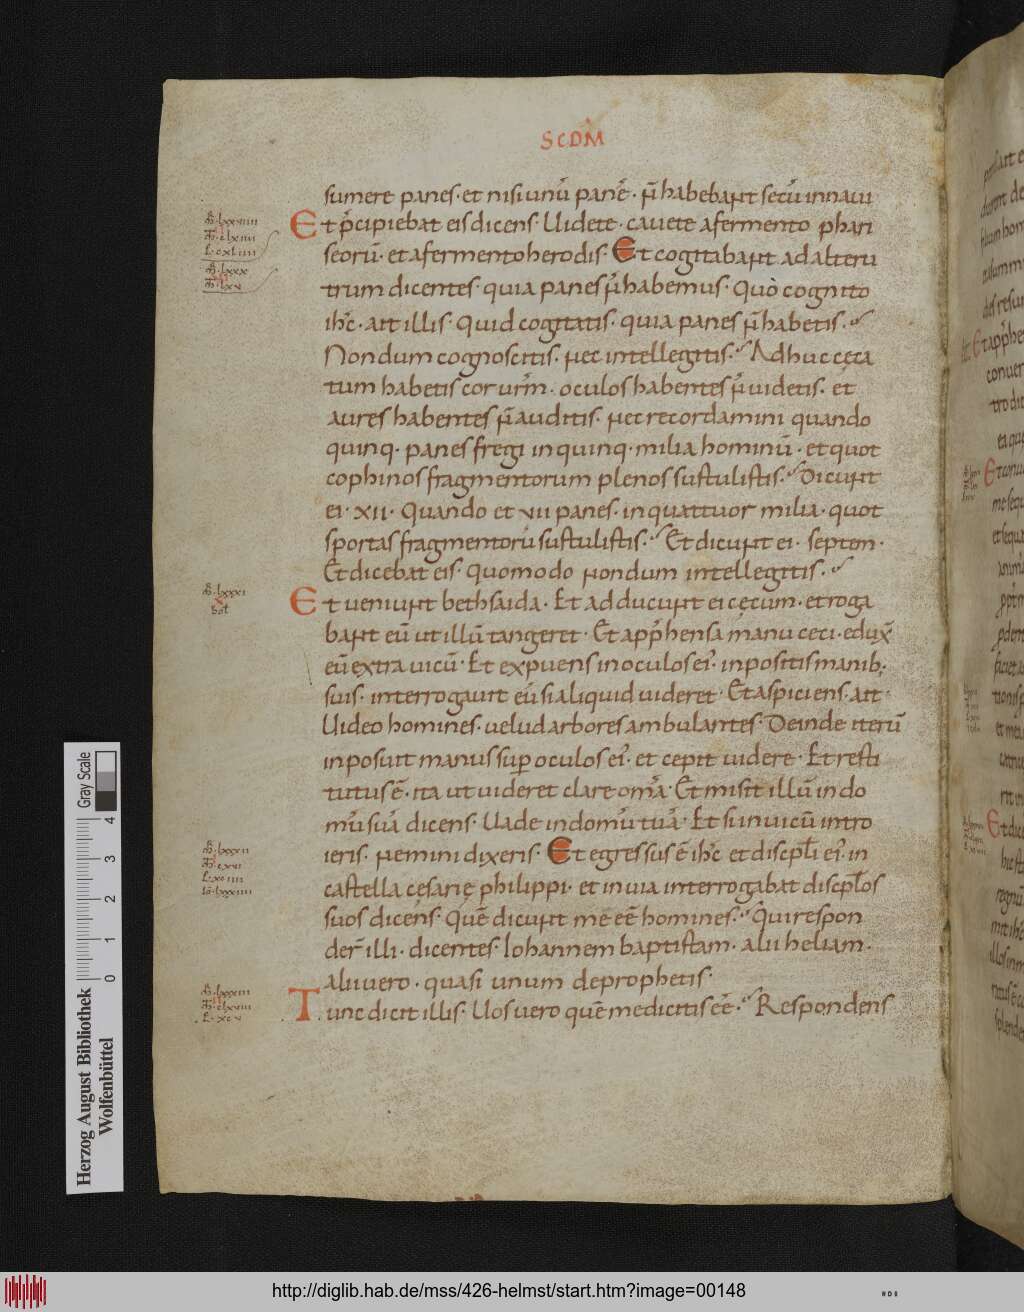 SCDM
sumere panes · et nisi unū panē · n̄ habebant secū in naui
Et p̄cipiebat eis dicens · Uidete · cauete a fermento phari
seorū · et a fermento herodis · Et cogitabant ad alteru
trum dicentes · quia panes n̄ habemus · Quo cognito
ih̄c · ait illis · Quid cogitatis · quia panes n̄ habetis ·
Nondum cognoscitis · nec intellegitis · Adhuc cęca
tum habetis cor ur̄m · oculos habentes n̄ uidetis · et
aures habentes n̄ auditis · nec recordamini quando
quinq · panes fregi in quinq · milia hominū · et quot
cophinos fragmentorum plenos sustulistis · Dicunt
ei · XII · Quando et VII panes · in quattuor milia · quot
sportas fragmentorū sustulistis · Et dicunt ei · septem ·
Et dicebat eis · Quomodo nondum intellegitis ·
Et ueniunt bethsaida · Et adducunt ei cęcum · et roga
bant eū ut illū tangeret · Et app̄hensa manu ceci · edux̄
eū extra uicū · Et expuens in oculos ei' · inpositis manib;
suis · interrogauit eū si aliquid uideret · Et aspiciens · ait ·
Uideo homines · uelud arbores ambulantes · Deinde iterū
inposuit manus sup oculos ei' · et cepit uidere · Et resti
tutus ē · ita ut uideret clare om̄a · Et misit illū in do
mū suā dicens · Uade in domū tuā · Et si in uicū intro
ieris · nemini dixeris · Et egressus ē ih̄c et discip̄li ei' · in
castella cęsarię philippi · et in uia interrogabat discip̄los
suos dicens · Quē dicunt me eē homines · Qui respon
der̄ illi · dicentes · Iohannem baptistam · alii heliam ·
alii uero · quasi unum de prophetis ·
Tunc dicit illis · Uos uero quē me dicitis eē · Respondens
Herzog August Bibliothek
Wolfenbüttel
0 1 2 3 4
Gray Scale
http://diglib.hab.de/mss/426-helmst/start.htm?image=00148